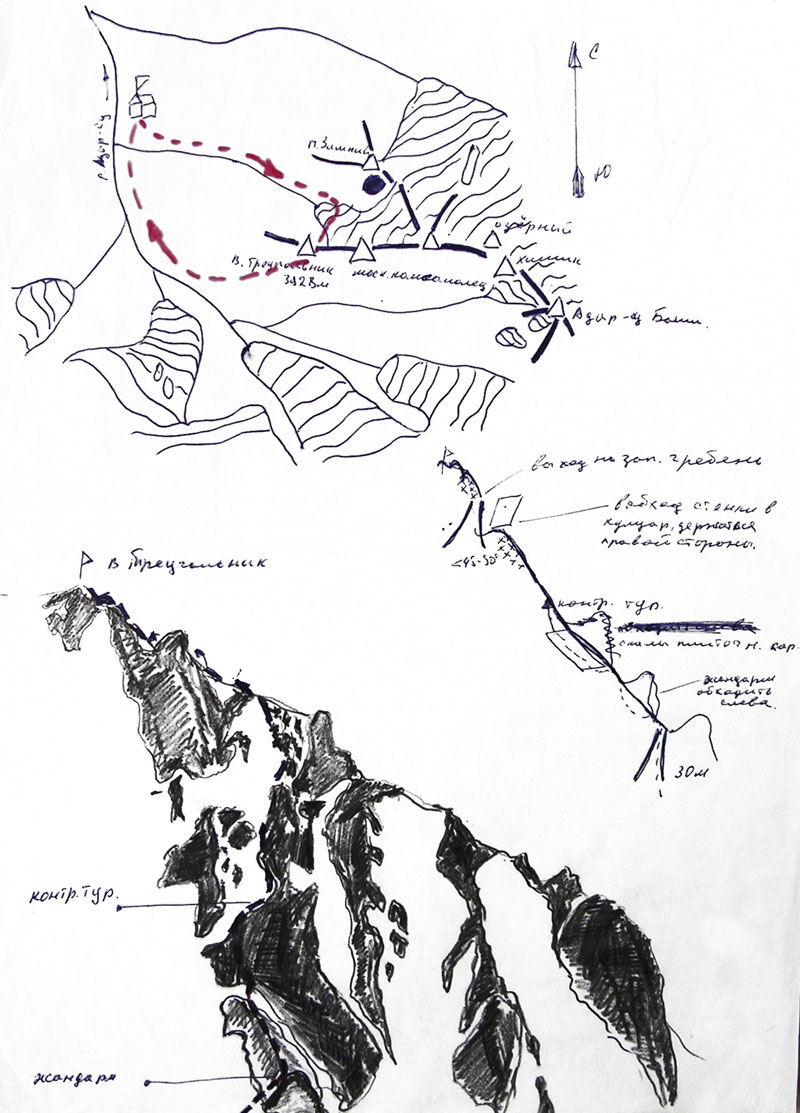 С
р. Адыр-су
п. Зимний
озёрный
В. Треугольник
3928м
моск. комсомолец
химик
Адыр-су Баши.
Ю
выход на зап. гребень
в обход стенки в
кулуар, держаться
правой стороны.
<45-50°
контр. тур.
скалы плиточн. хар.
жандарм
обходить
слева.
30м
В Треугольник
контр. тур.
жандарм